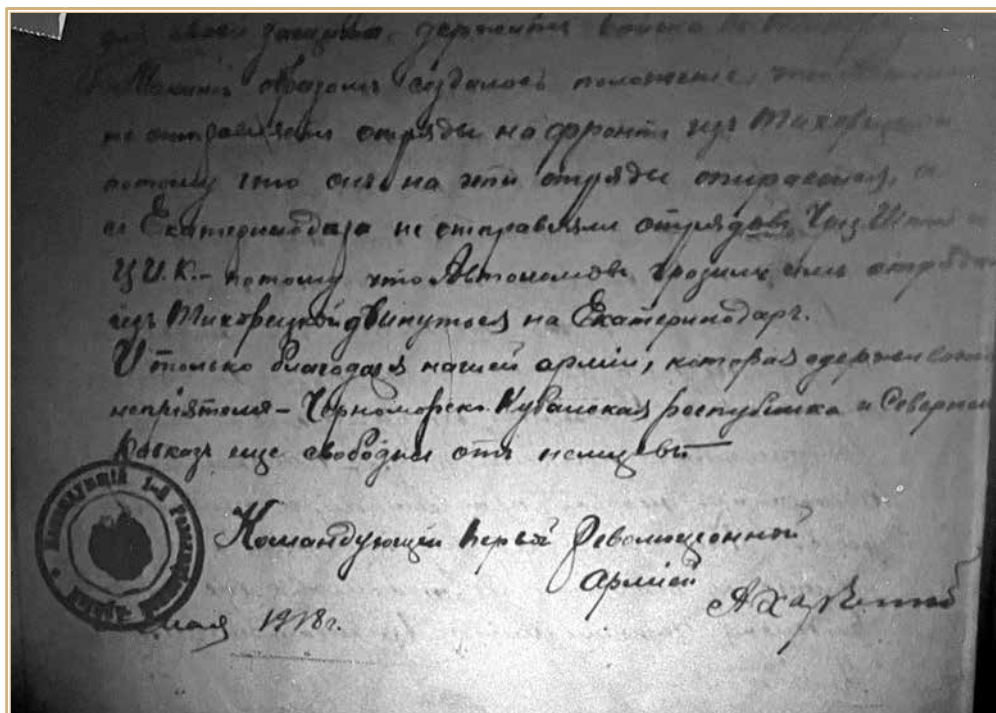 для своей защиты, держитъ войска
Такимъ образомъ создалось положеніе, что
не отправляетъ отряды на фронтъ изъ Тихорѣцкой
потому что онъ на эти отряды опирается, а
из Екатеринодара не отправляли отрядовъ
Ц.И.К. - потому что Автономовъ грозилъ отрядами
изъ Тихорѣцкой двинуться на Екатеринодаръ.
И только благодаря нашей арміи, которая
непріятеля - Черноморско-Кубанская республика и Северной
Кавказъ еще свободны отъ немцевъ
Командующій первой Революціонной
арміей
АХарченко
мая 1918г.
Командующій 1-й Революціонной Арміей